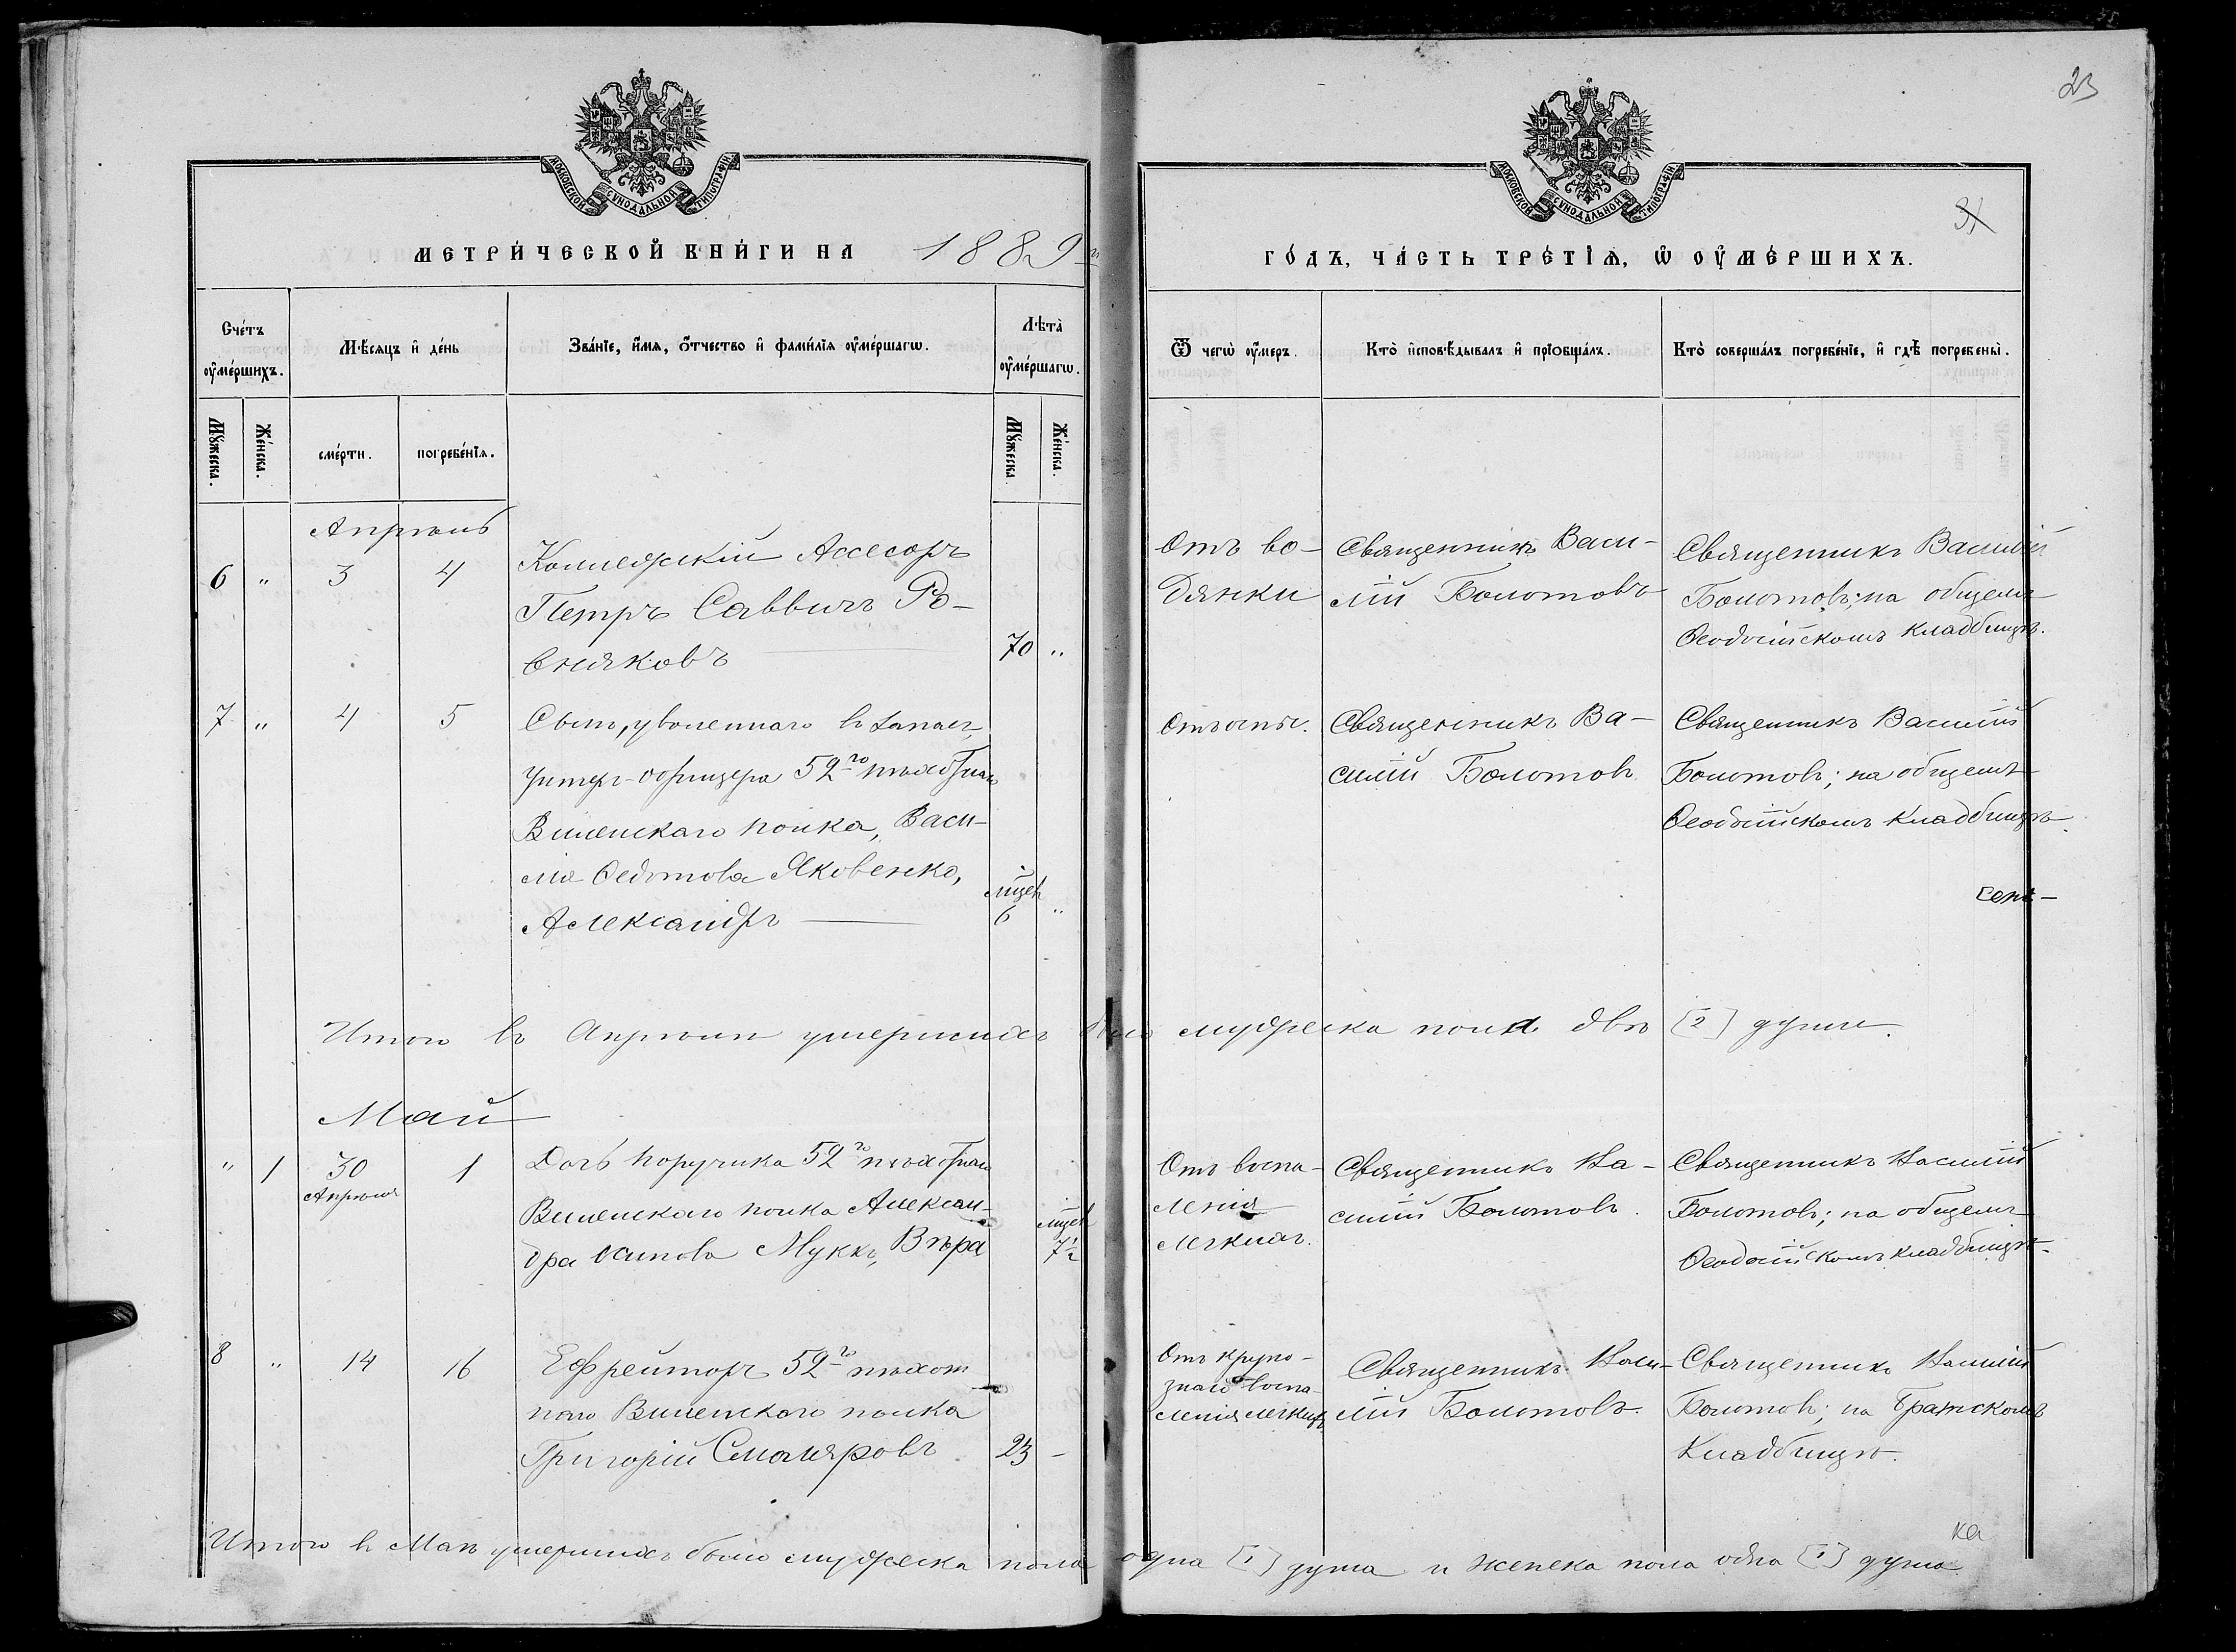 23
31
МОСКОВСКОЙ СѴНОДАЛЬНОЙ ТИПОГРАФІИ
МОСКОВСКОЙ СѴНОДАЛЬНОЙ ТИПОГРАФІИ
МЕТРИ́ЧЕСКОЙ КНИ́ГИ НА 1889 г
ГО́ДЪ, ЧА́СТЬ ТРЕ́ТІѦ, Ѡ҆ ОУ҆МЕ́РШИХЪ.
Сче́тъ оу҆ме́ршихъ.
Мѣ́сяцъ и҆ де́нь
Зва́нїе, и҆́мѧ, ѻ҆́тчество и҆ фамилїѧ оу҆ме́ршагѡ.
Лѣта̀ оу҆ме́ршагѡ.
Ѿ чегѡ̀ оу҆́меръ.
Кто̀ и҆сповѣ́дывалъ и҆ прїобща́лъ.
Кто̀ соверша́лъ погребе́нїе, и҆ гдѣ̀ погребены̀.
Мꙋ́жеска.
Же́нска.
сме́рти.
погребе́нїѧ.
Мꙋ́жеска.
Же́нска.
Апрѣль
6 " 3 4
Коллежскій Ассесоръ
Петръ Саввичъ Ро-
сняковъ
70 "
Отъ во-
дянки
Священникъ Васи-
лій Болотовъ
Священникъ Василій
Болотовъ; на общемъ
Ѳеодосійскомъ кладбищѣ.
7 " 4 5
Сынъ, уволеннаго въ запасъ
Унтеръ-офицера 52го пѣхотнаго
Виленскаго полка, Васи-
лія Ѳедотова Яковенко,
Александръ
мцев
6 "
Отъ оспы.
Священникъ Ва-
силій Болотовъ
Священникъ Василій
Болотовъ; на общемъ
Ѳеодосійскомъ кладбищѣ.
Итого въ Апрѣлѣ умершихъ было мужеска пола двѣ [2] души.
Май
" 1 30
Апрѣля
1
Дочь поручика 52го пѣхотнаго
Виленскаго полка Алексан-
дра Осипова Муккъ, Вѣра
мцев
7½
Отъ воспа-
ленія
легкихъ.
Священникъ Ва-
силій Болотовъ.
Священникъ Василій
Болотовъ; на общемъ
Ѳеодосійскомъ кладбищѣ.
8 " 14 16
Ефрейторъ 52го пѣхот
наго Виленскаго полка
Григорій Смоляровъ
23 -
Отъ крупо-
знаго воспа-
ленія легкихъ
Священникъ Васи-
лій Болотовъ.
Священникъ Василій
Болотовъ; на Братскомъ
кладбищѣ.
Итого въ Маѣ умершихъ было мужеска пола одна [1] душа и женска пола одна [1] душа
ка